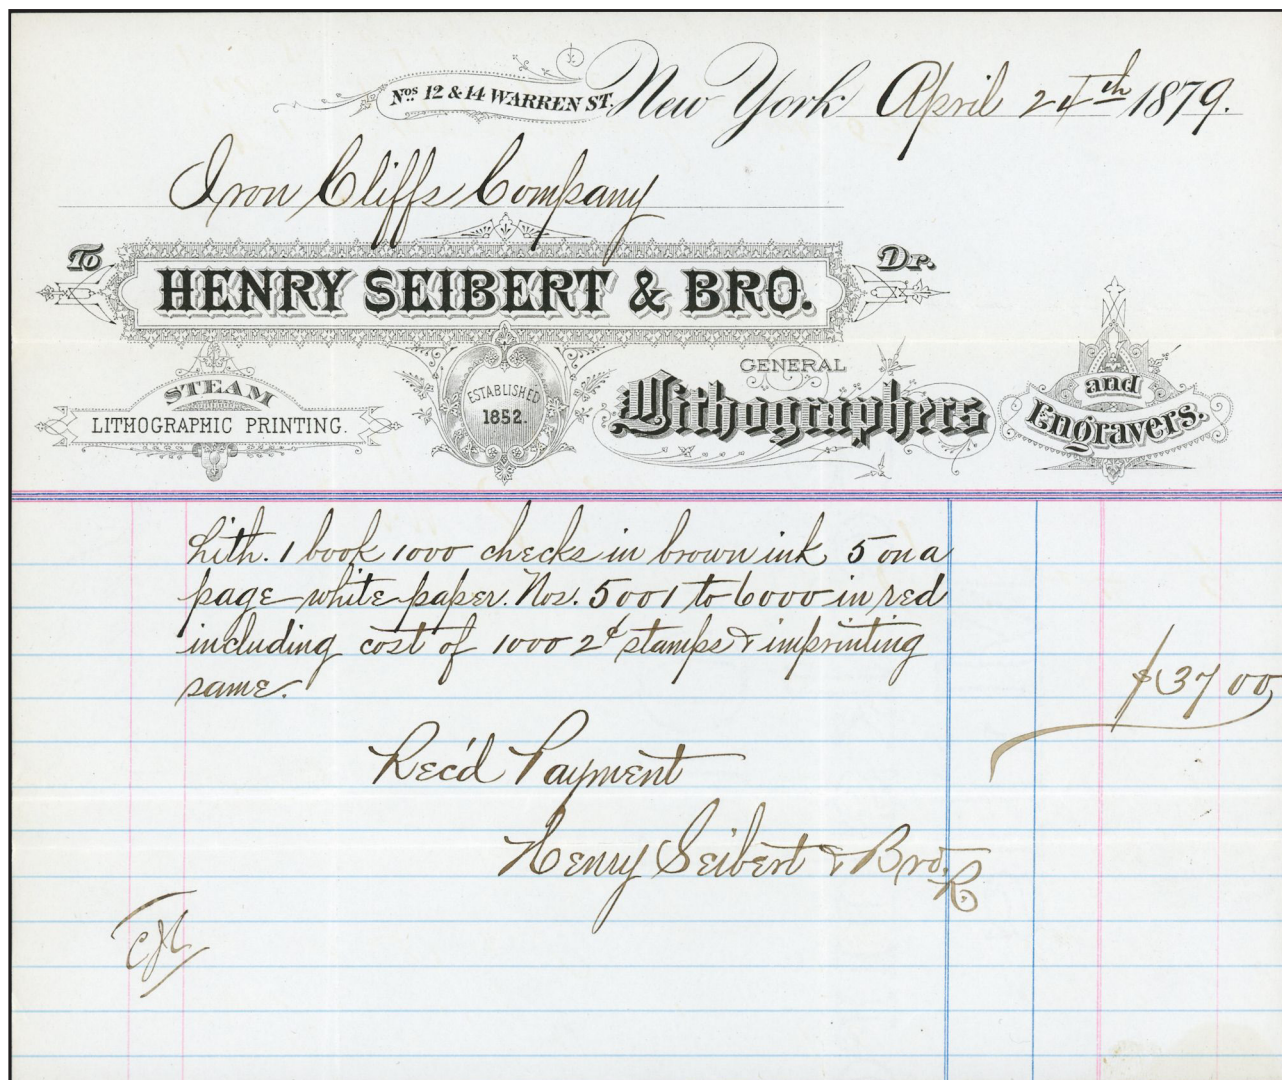 Nos 12 & 14 WARREN ST. New York April 24th 1879.
Iron Cliffs Company
To Dr.
HENRY SEIBERT & BRO.
STEAM
LITHOGRAPHIC PRINTING.
ESTABLISHED
1852.
GENERAL
Lithographers
and
Engravers.
Lith. 1 book 1000 checks in brown ink 5 on a
page white paper. Nos. 5001 to 6000 in red
including cost of 1000 2¢ stamps & imprinting
same. $37 00
Rec'd Payment
Henry Seibert & Bro.
R.